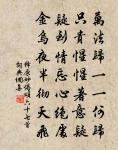 萬法歸一一何歸
只貴惺惺著意疑
疑到情忘心絕處
金烏夜半徹天飛
釋原妙偈頌六十七首